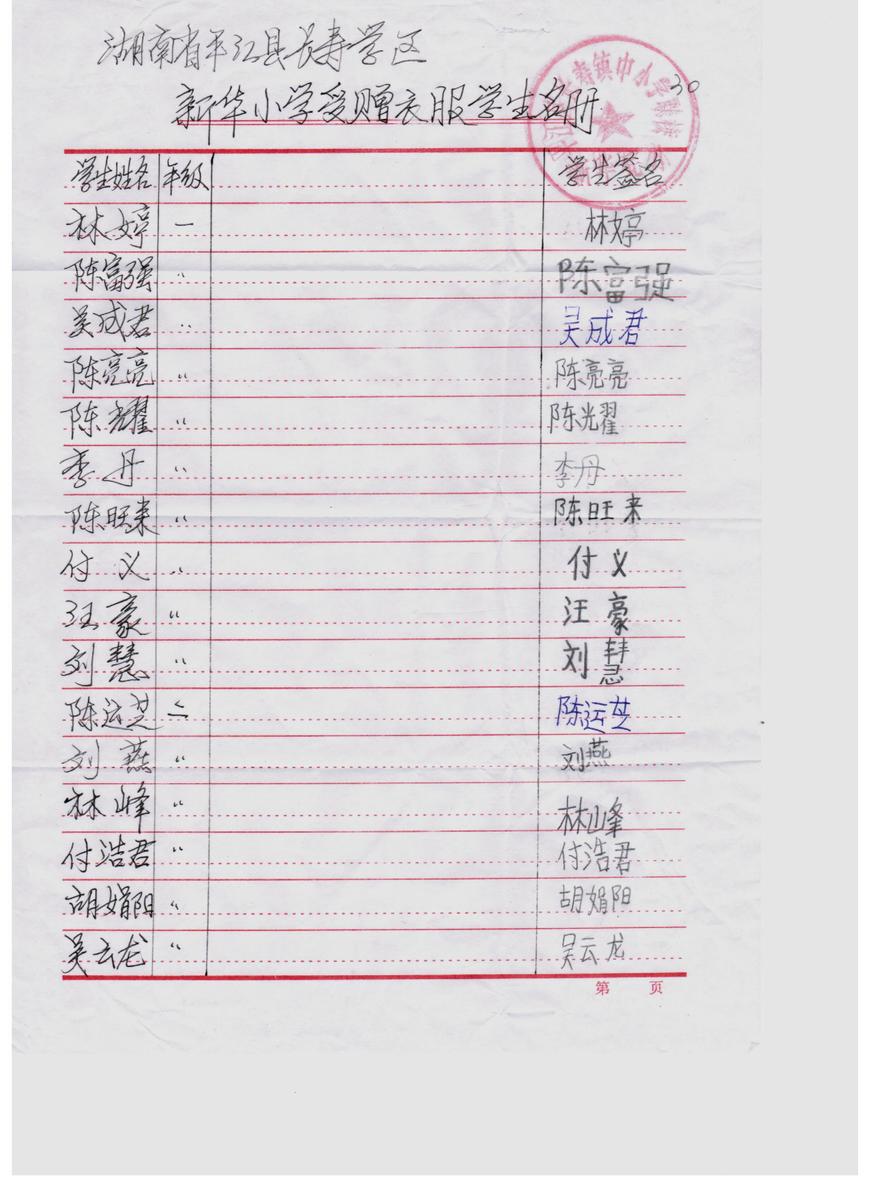 湖南省平江县长寿学区
30
新华小学受赠衣服学生名册
寿镇中小学
学生姓名 年级 学生签名
林婷 一 林婷
陈富强 〃 陈富强
吴成君 〃 吴成君
陈亮亮 〃 陈亮亮
陈光耀 〃 陈光耀
李丹 〃 李丹
陈旺来 〃 陈旺来
付义 〃 付义
汪豪 〃 汪豪
刘慧 〃 刘慧
陈运芝 二 陈运芝
刘燕 〃 刘燕
林峰 〃 林峰
付浩君 〃 付浩君
胡娟阳 〃 胡娟阳
吴云龙 〃 吴云龙
第 页